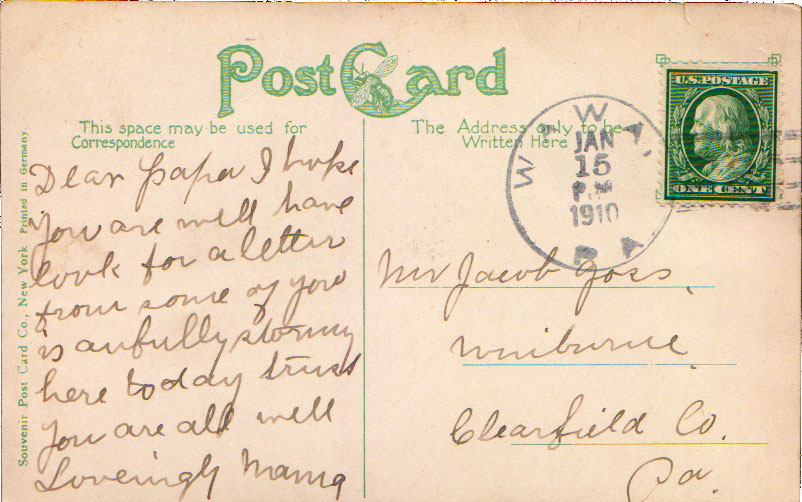 Post Card
This space may be used for
Correspondence
The Address only to be
Written Here
U.S. POSTAGE
ONE CENT
WAWA,
JAN
15
P.M
1910
PA.
Dear Papa I hope
you are well have
look for a letter
from some of you
is awfully stormy
here today trust
you are all well
Loveingly Mama
Mr Jacob Goss,
Winburne
Clearfield Co.
Pa.
Souvenir Post Card Co., New York Printed in Germany.